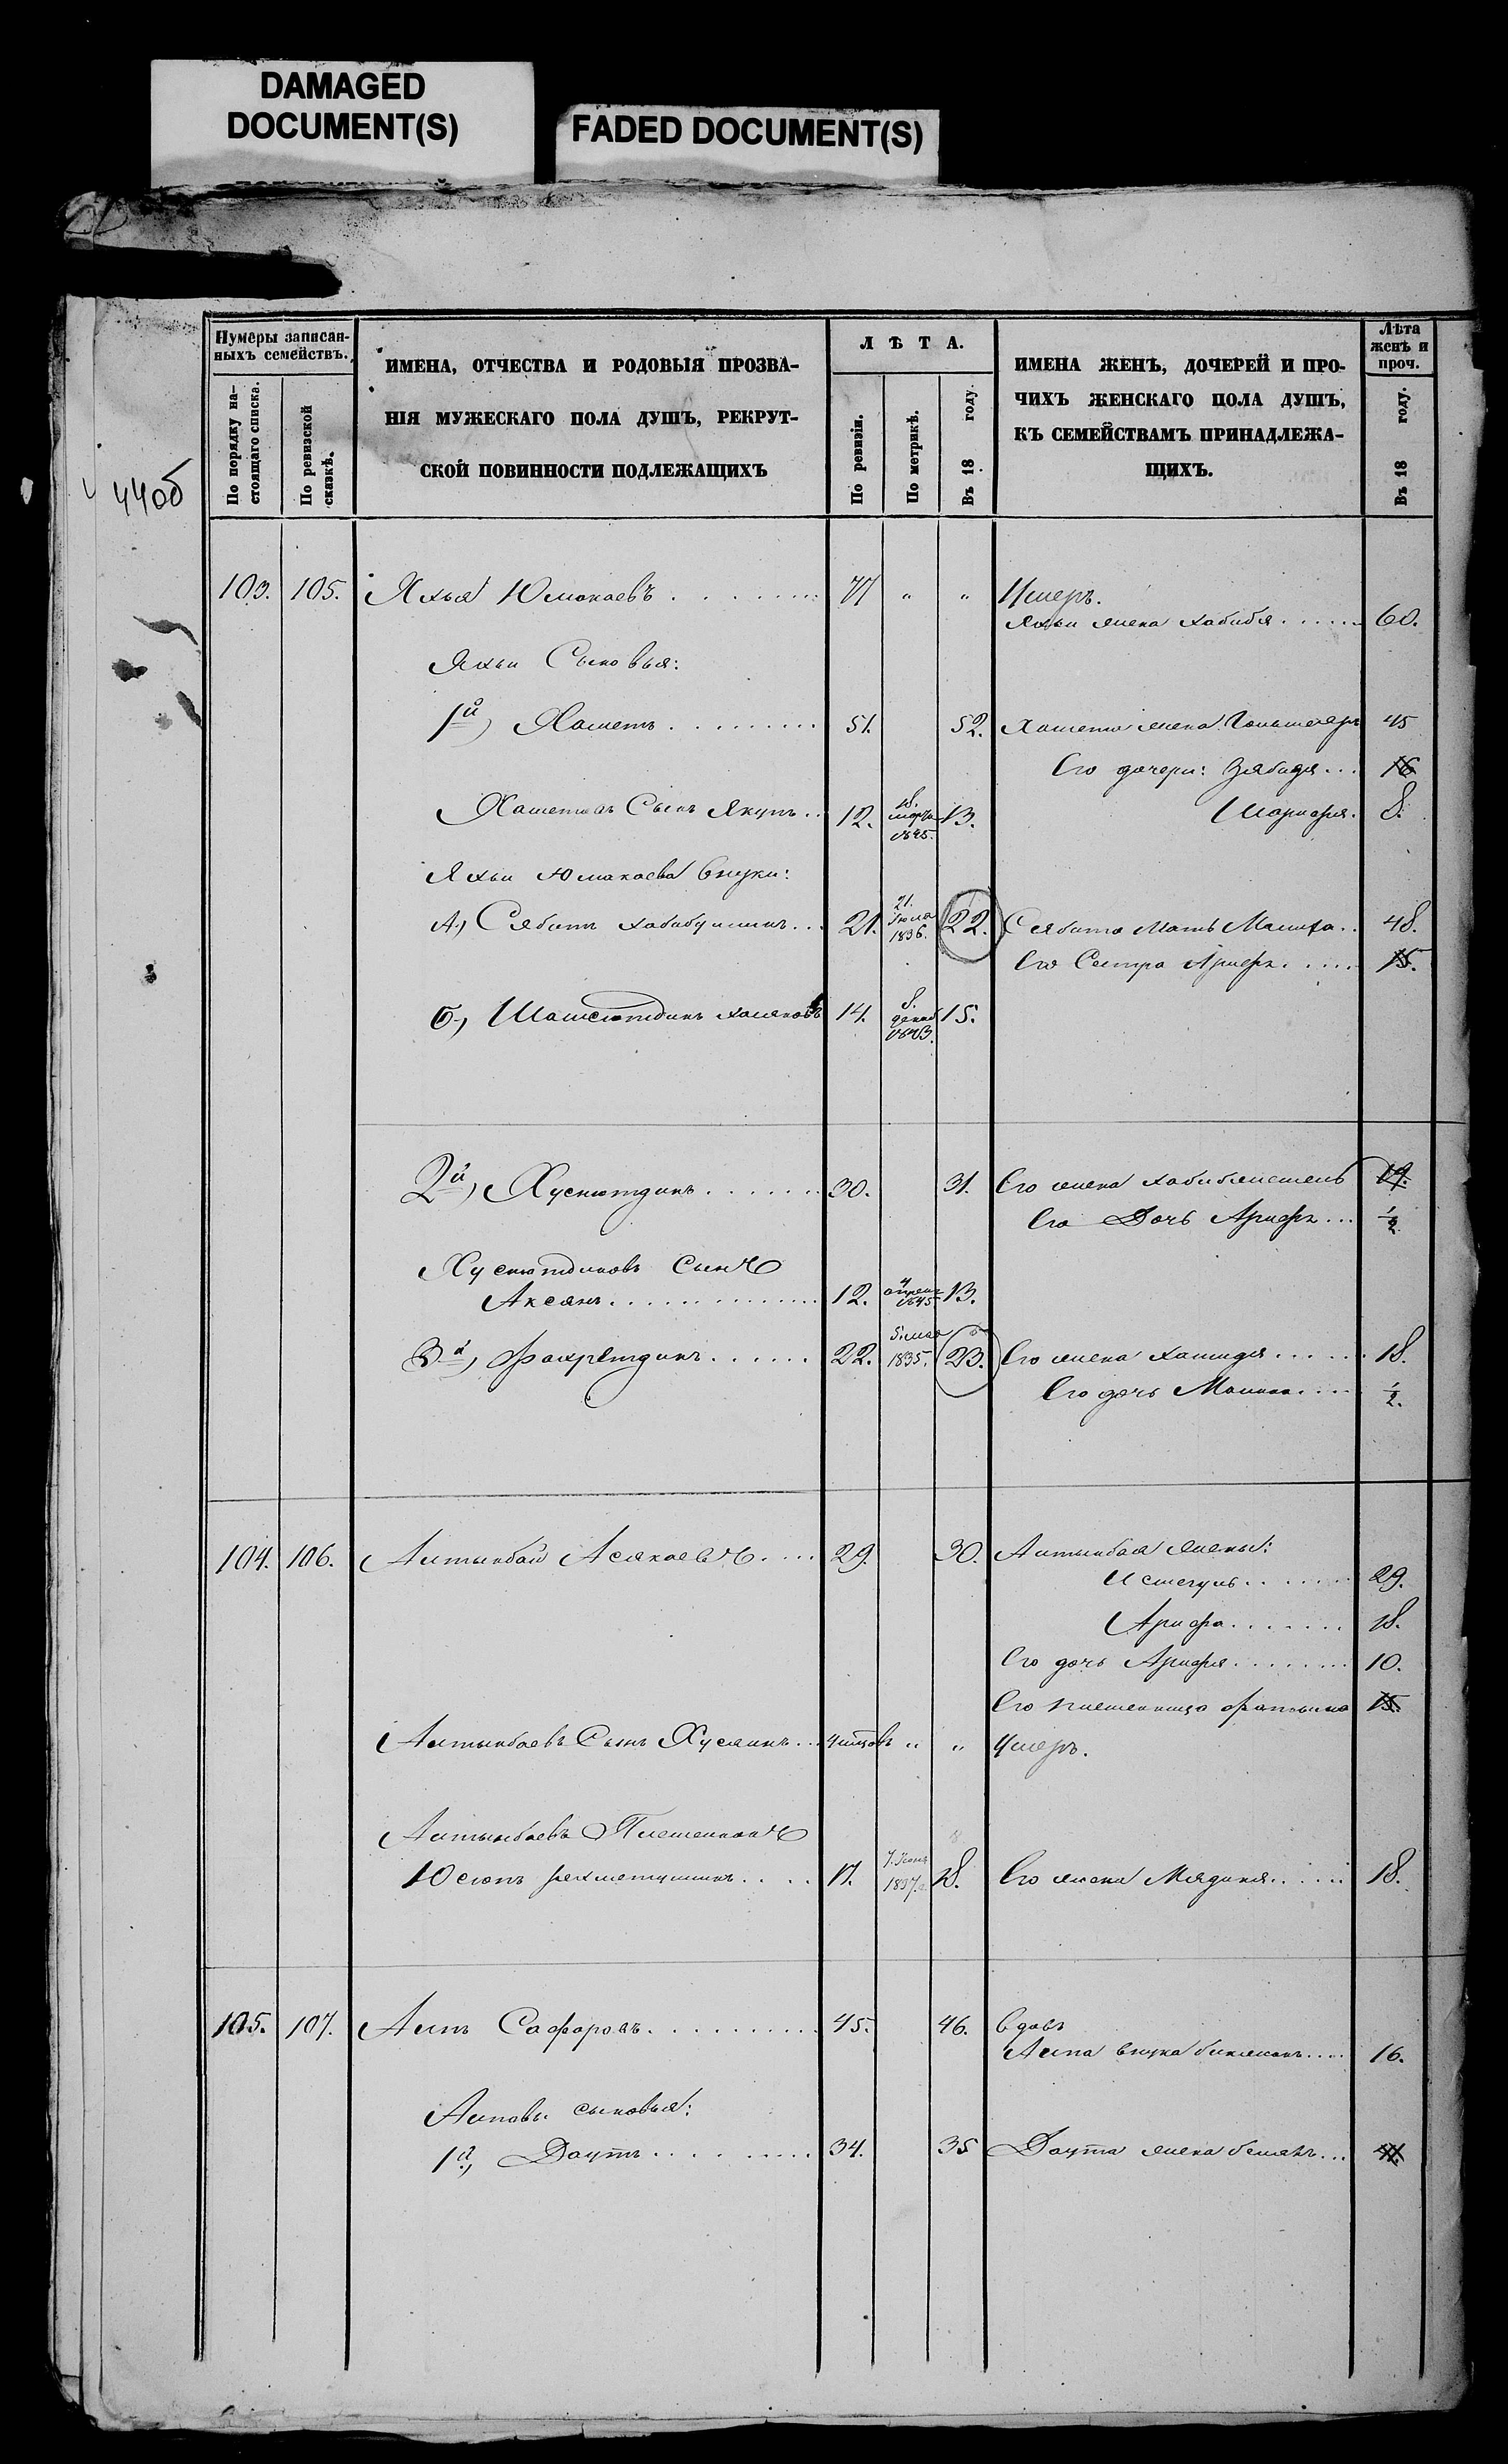 DAMAGED
DOCUMENT(S)
FADED DOCUMENT(S)
44об
Нумеры записан-
ныхъ семействъ.
По порядку на-
стоящаго списка.
По ревизской
сказкѣ.
ИМЕНА, ОТЧЕСТВА И РОДОВЫЯ ПРОЗВА-
НІЯ МУЖЕСКАГО ПОЛА ДУШЪ, РЕКРУТ-
СКОЙ ПОВИННОСТИ ПОДЛЕЖАЩИХЪ
ЛѢТА.
По ревизіи.
По метрикѣ.
Въ 18 году.
ИМЕНА ЖЕНЪ, ДОЧЕРЕЙ И ПРО-
ЧИХЪ ЖЕНСКАГО ПОЛА ДУШЪ,
КЪ СЕМЕЙСТВАМЪ ПРИНАДЛЕЖА-
ЩИХЪ.
Лѣта
женъ и
проч.
Въ 18 году.
103. 105. Яхья Юмакаевъ 77 " " Умеръ.
Яхьи жена Хабибя 60.
Яхьи Сыновья:
1й) Хаметъ 51. 52. Хамета жена 45
Его дочери: Зябидя 16
Хаметовъ Сынъ Якупъ 12. 18. марта 1845. 13. Шарифя. 8.
Яхьи Юмакаева внуки:
А) Сябитъ Хабибуллинъ 21. 21. Іюля 1836. 22. Сябита Мать Малифа 48.
Его Сестра 15.
Б) Шамсютдинъ 14. 8. декаб 1843. 15.
2й) Хуснютдинъ 30. 31. Его жена 19.
Его Дочь 1/2
Хуснютдиновъ сынъ
Аксянъ 12. 4 апреля 1845 13.
3й) Фахретдинъ 22. 5. мая 1835. 23. Его жена Хамидя 18.
Его дочь 1/2.
104. 106. Алтынбай Асякаевъ 29. 30. Алтынбая жены:
29.
Арифа 18.
Его дочь Арифя 10.
Его племянница 15.
Алтынбаевъ Сынъ Хусяинъ " " Умеръ.
Алтынбаевъ Племянникъ
Юсюпъ Рахметуллинъ 17. 7. Іюня 1837. 18. Его жена Мядиня 18.
105. 107. Алпъ Сафаровъ 45. 46. вдовъ
Алпа внука 16.
Алповы сыновья:
1й) Даутъ 34. 35 Даута жена